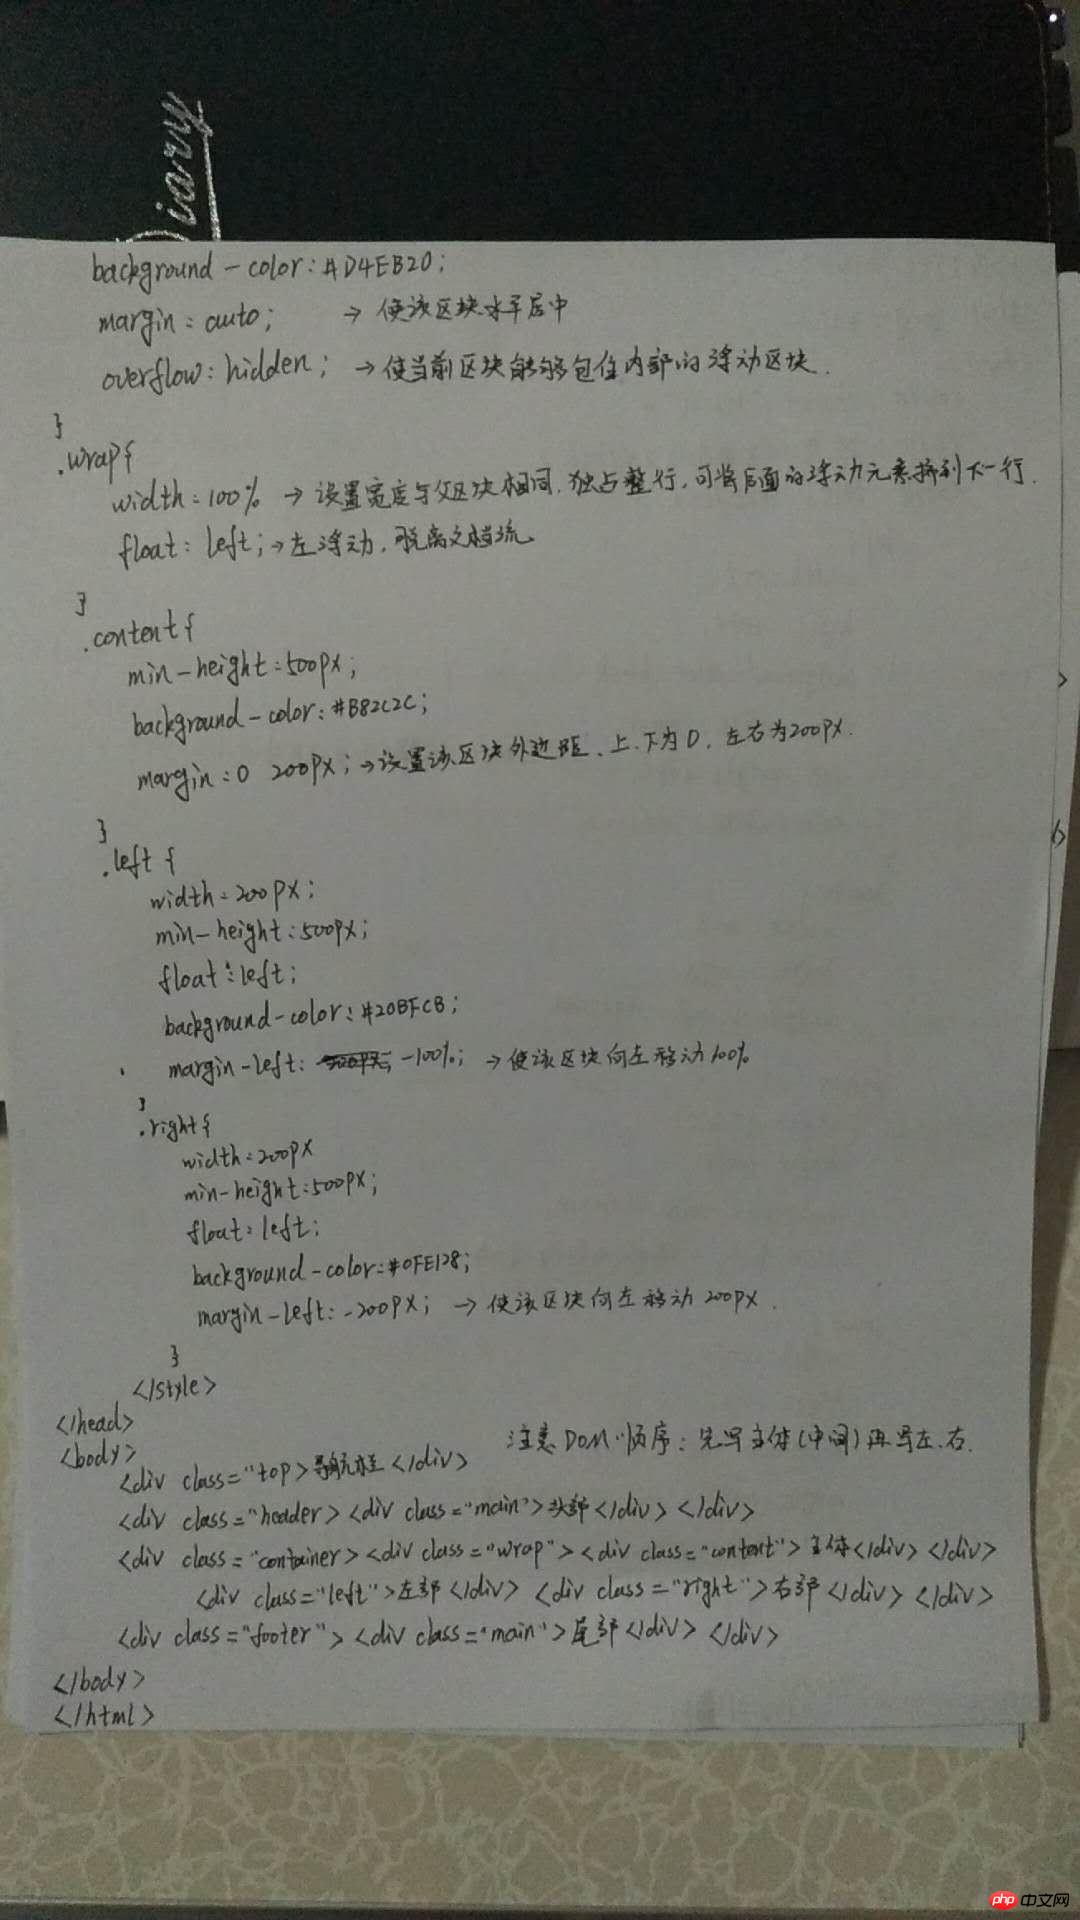 Diary
background-color:#D4EB20;
margin:auto; → 使该区块水平居中
overflow:hidden; → 使当前区块能够包住内部的浮动区块.
}
.wrap{
width:100% → 设置宽度与父区块相同.独占整行,可将后面的浮动元素挤到下一行.
float:left; → 左浮动,脱离文档流
}
.content{
min-height:500px;
background-color:#B82C2C;
margin:0 200px; → 设置该区块外边距、上.下为0.左右为200px.
}
.left{
width:200px;
min-height:500px;
float:left;
background-color:#20BFCB;
margin-left: -100%; → 使该区块向左移动100%
}
.right{
width:200px
min-height:500px;
float:left;
background-color:#0FE128;
margin-left:-200px; → 使该区块向左移动200px.
}
</style>
</head>
<body> 注意DOM顺序:先写主体(中间)再写左.右.
<div class="top>导航栏</div>
<div class="header><div class="main">头部</div></div>
<div class="container><div class="wrap"><div class="content">主体</div></div>
<div class="left">左部</div> <div class="right">右部</div></div>
<div class="footer"><div class="main">尾部</div></div>
</body>
</html>
php 中文网